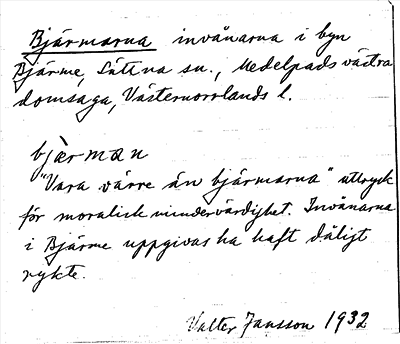 Bjärmarna invånarna i byn
Bjärme, Sättna sn., Medelpads västra
domsaga, Västernorrlands l.
bjärman
"Vara värre än bjärmarna" uttryck
för moralisk mindervärdighet. Invånarna
i Bjärme uppgivas ha haft dåligt
rykte.
Valter Jansson 1932